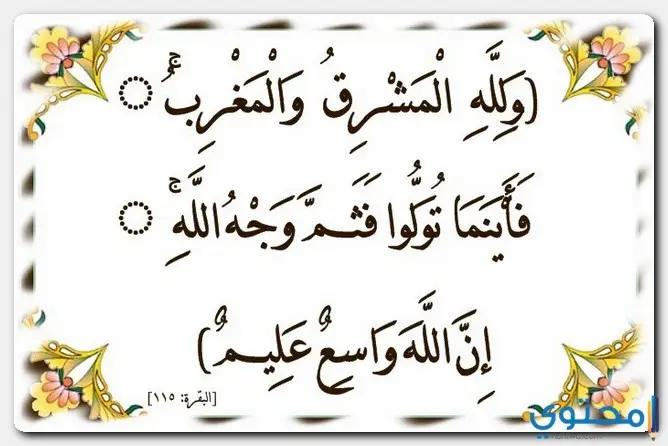 (وَلِلَّهِ الْمَشْرِقُ وَالْمَغْرِبُ ۚ ۝
فَأَيْنَمَا تُوَلُّوا فَثَمَّ وَجْهُ اللَّهِ ۚ ۝
إِنَّ اللَّهَ وَاسِعٌ عَلِيمٌ)
[البقرة: ١١٥]
محتوي